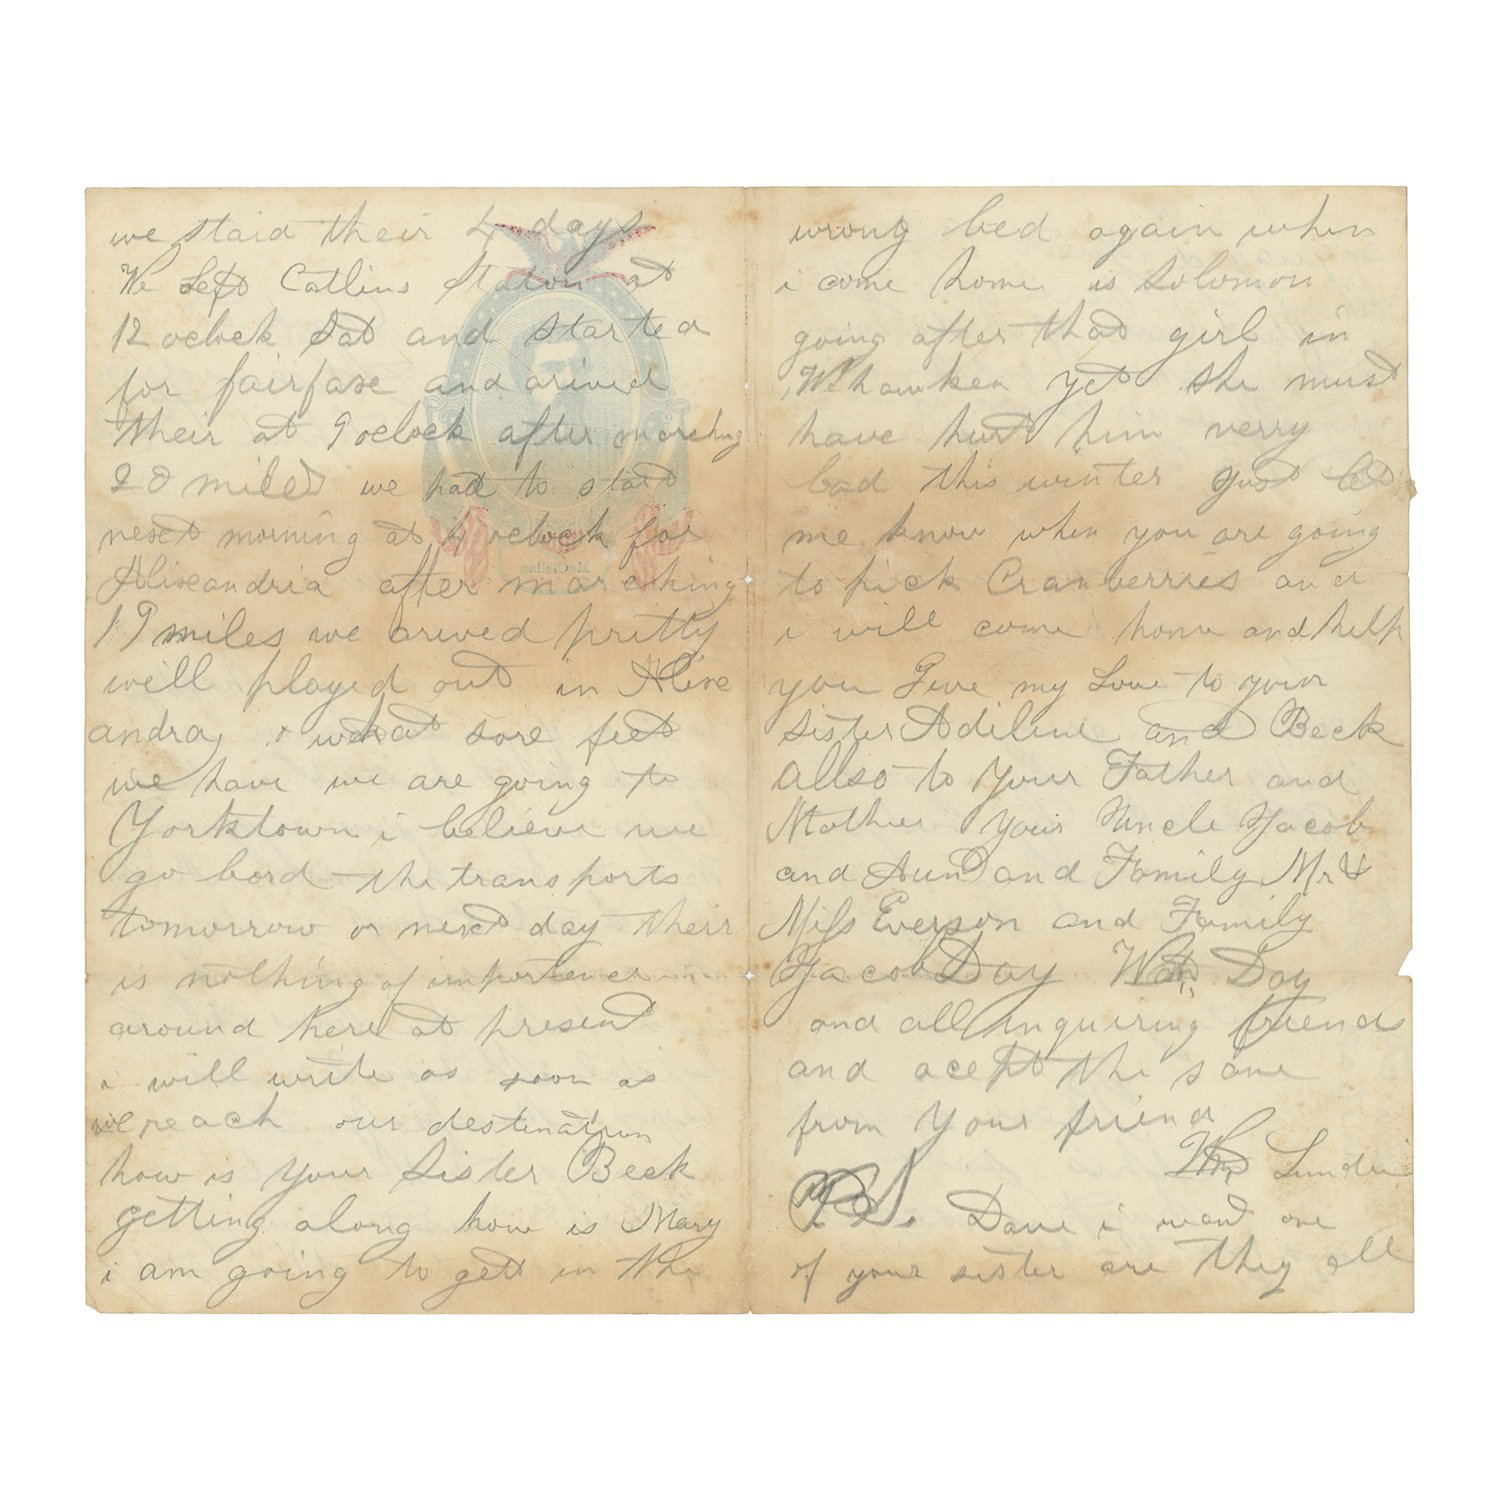 we staid their 4 days
We Left Catlins Station at
12 oclock Sat and started
for fairfaxe and arived
their at 9 oclock after marching
20 miles we had to start
next morning at 4 oclock for
Alixeandria after marching
19 miles we arived pritty
well played out in Alixe
andray & what sore feet
we have we are going to
Yorktown i believe we
go bord the transports
tomorrow or next day their
is nothing of importence
around here at present
i will write as soon as
we reach our destination
how is your Sister Beck
getting along how is Mary
i am going to gett in the
wrong bed again when
i come home is Solomon
going after that girl in
Wehawken yet she must
have hurt him verry
bad this winter Just let
me know when you are going
to pick Cranberries and
i will come home and help
you Give my Love to your
sister Adiline and Beck
allso to your Father and
Mother your Uncle Jacob
and Aunt and Family Mr &
Miss Everson and Family
Jacob Day Wm Day
and all inquiring friends
and acept the same
from your friend
Wm
PS. Dave i want one
of your sister are they all
McClellan